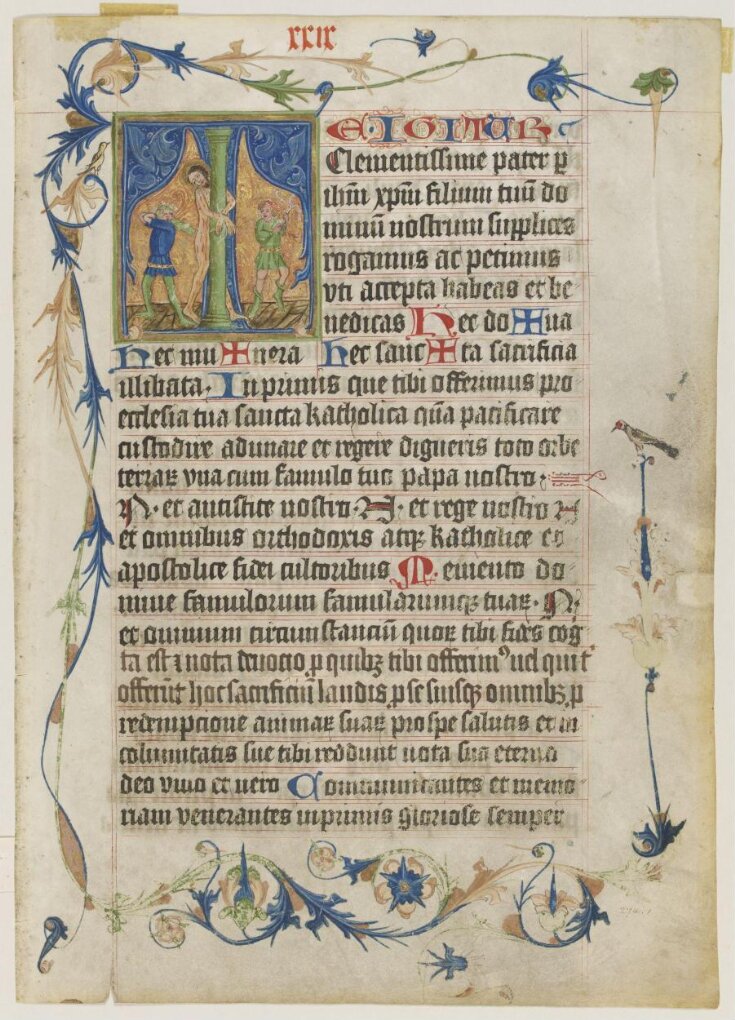 xxix
TE·IGITUR C
Clementissime pater p
ihm xpm filium tuu do
minu nostrum supplices
rogamus ac petimus
vti accepta habeas et be
nedicas Hec do✠na
hec mu✠nera hec sanc✠ta sacrificia
illibata. Inprimis que tibi offerimus pro
ecclesia tua sancta katholica qua pacificare
custodire adunare et regere digneris toto orbe
terraꝝ vna cum famulo tuo papa nostro
N· et antistite nostro·N· et rege nostro N
et omnibus orthodoxis atqꝫ katholice et
apostolice fidei cultoribus Memento do
mine famulorum famularumqꝫ tuaꝝ·N·
et omnium circumstanciu quoꝝ tibi fides cog
ta est ⁊ nota deuocio p quibꝫ tibi offerimꝰ uel qui t
offerut hoc sacrificiu laudis p se suisqꝫ omnibꝫ p
redempcione animaꝝ suaꝝ pro spe salutis et in
columitatis sue tibi reddunt uota sua eterno
deo viuo et uero Communicantes et memo
riam venerantes inprimis gloriose semper